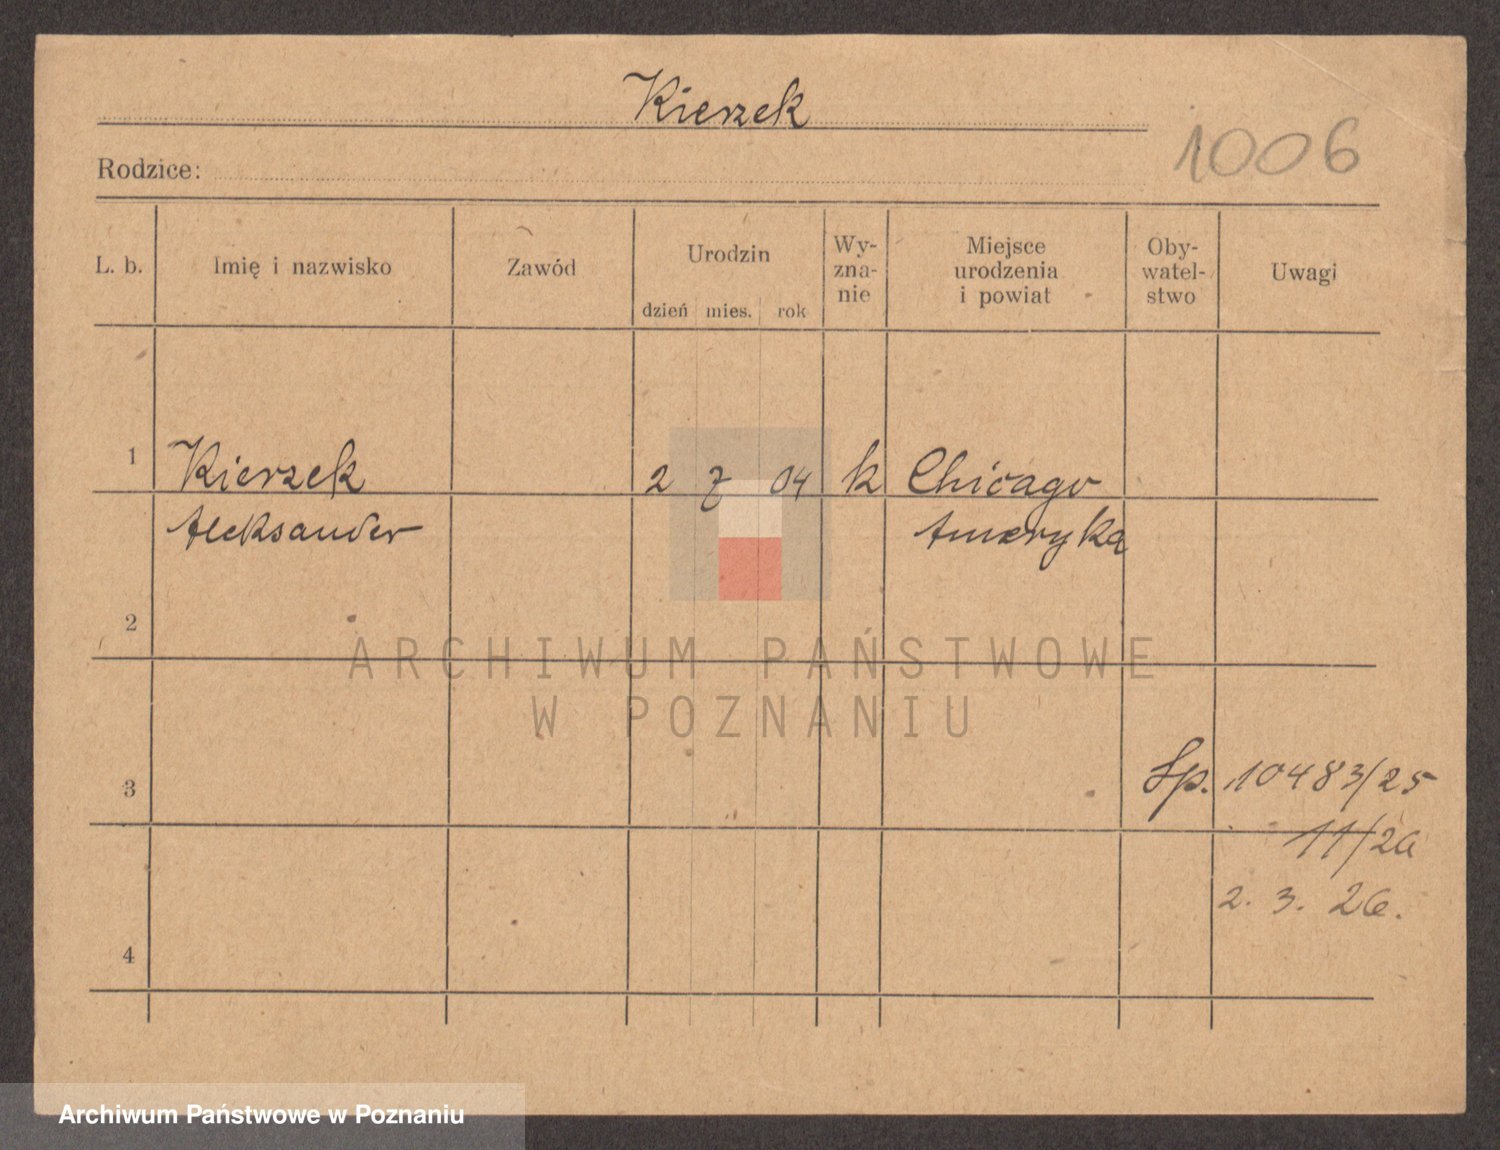 Kierzek
1006
Rodzice:
L. b. Imię i nazwisko Zawód Urodzin dzień mies. rok Wy-zna-nie Miejsce urodzenia i powiat Oby-watel-stwo Uwagi
1 Kierzek 2 7 04 k Chicago
Aleksander Ameryka
2
ARCHIWUM PAŃSTWOWE
W POZNANIU
3 Sp. 10483/25
11/26
2. 3. 26.
4
Archiwum Państwowe w Poznaniu